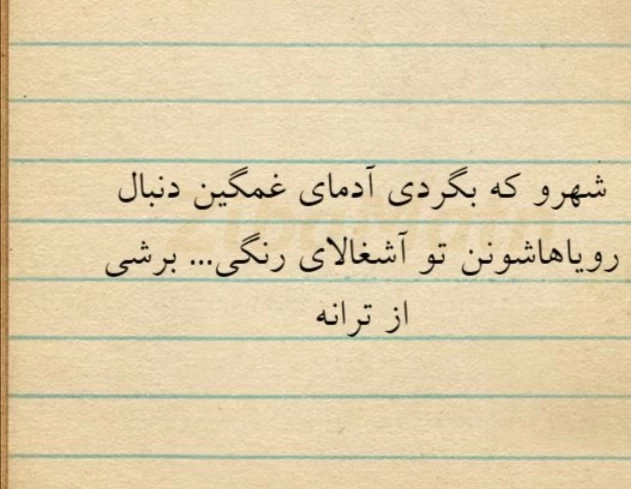 شهرو که بگردی آدمای غمگین دنبال
رویاهاشونن تو آشغالای رنگی... برشی
از ترانه